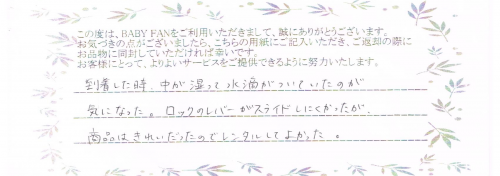 この度は、BABY FANをご利用いただきまして、誠にありがとうございます。
お気づきの点がございましたら、こちらの用紙にご記入いただき、ご返却の際に
お品物に同封していただければ幸いです。
お客様にとって、よりよいサービスをご提供できるように努力いたします。
到着した時、中が湿って水滴がついていたのが
気になった。ロックのレバーがスライドしにくかったが、
商品はきれいだったのでレンタルしてよかった。